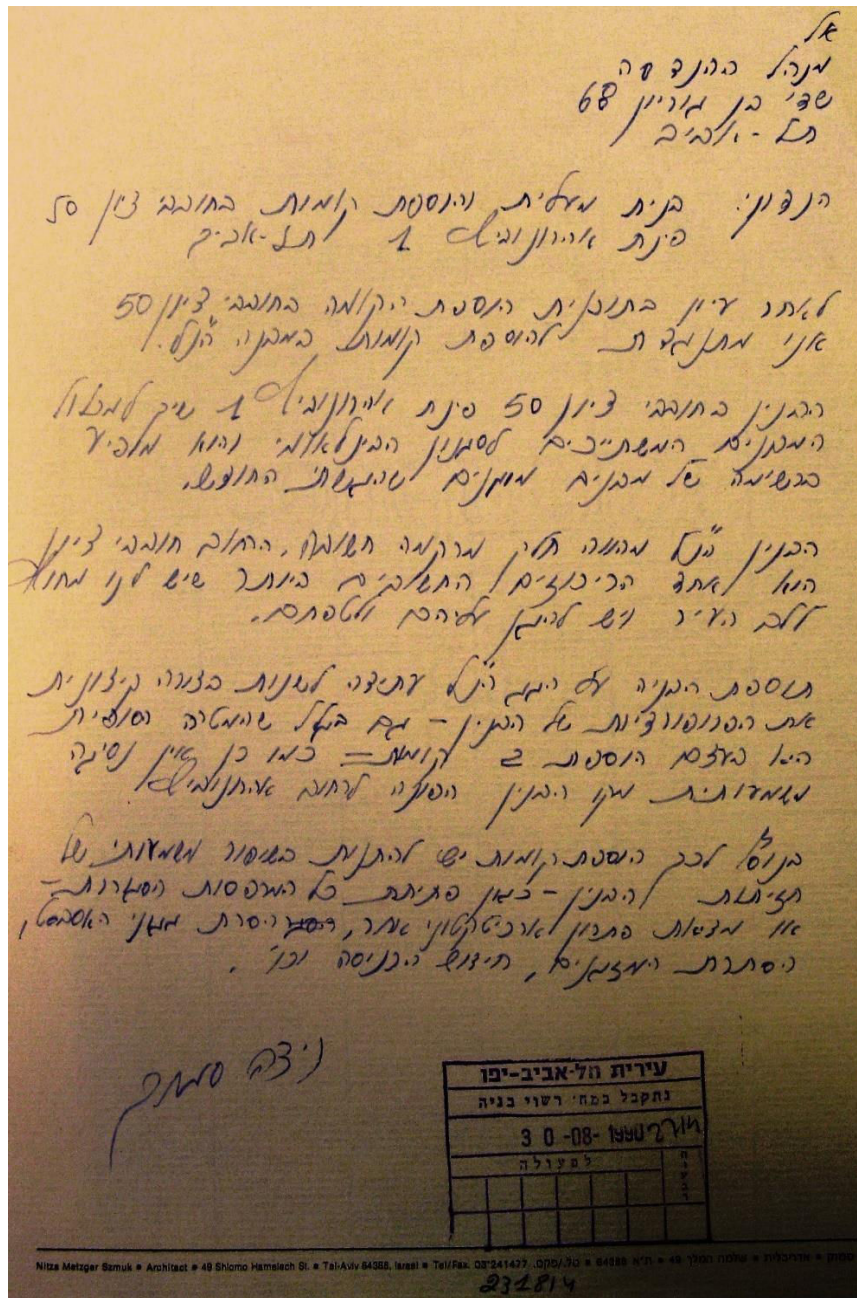 אל
מנהל ההנדסה
שד' בן גוריון 68
תל-אביב
הנדון: בנית מעלית והוספת קומות בחובבי ציון 50
פינת אהרונוביץ 1 תל-אביב
לאחר עיון בתוכנית הוספת הקומה בחובבי ציון 50
אני מתנגדת להוספת קומות במבנה הנ"ל.
הבנין בחובבי ציון 50 פינת אהרונוביץ 1 שיך למכלול
המבנים המשתייכים לסגנון הבינלאומי והוא מופיע
ברשימה של מבנים מוגנים שהגשתי החודש.
הבנין הנ"ל מהווה חלק מרקמה חשובה. הרחוב חובבי ציון
הוא אחד הריכוזים החשובים ביותר שיש לנו מחוץ
ללב העיר ויש להגן עליהם ולטפחם.
תוספת הבניה על הגג הנ"ל עתידה לשנות בצורה קיצונית
את הפרופורציות של הבנין – גם בגלל שהמטרה הסופית
היא בעצם הוספת 2 קומות – כמו כן אין נסיגה
משמעותית מקו הבנין הפונה לרחוב אהרונוביץ.
בנוסף לכך הוספת קומות יש להתנות בשיפור משמעותי של
חזיתות הבנין – כאן פתיחת כל המרפסות הסגורות –
או מציאת פתרון ארכיטקטוני אחר, הסרת גגוני האסבסט,
הסתרת המזגנים, חידוש הכניסה וכו'.
ניצה סמוק
עירית תל-אביב-יפו
נתקבל במח' רשוי בניה
30-08-1990
לפעולה
Nitza Metzger Szmuk • Architect • 49 Shlomo Hamelech St. • Tel-Aviv 64386, Israel • Tel/Fax. 03-241477 טל./פקס. • 64386 ת"א • שלמה המלך 49 • אדריכלית • סמוק
231814